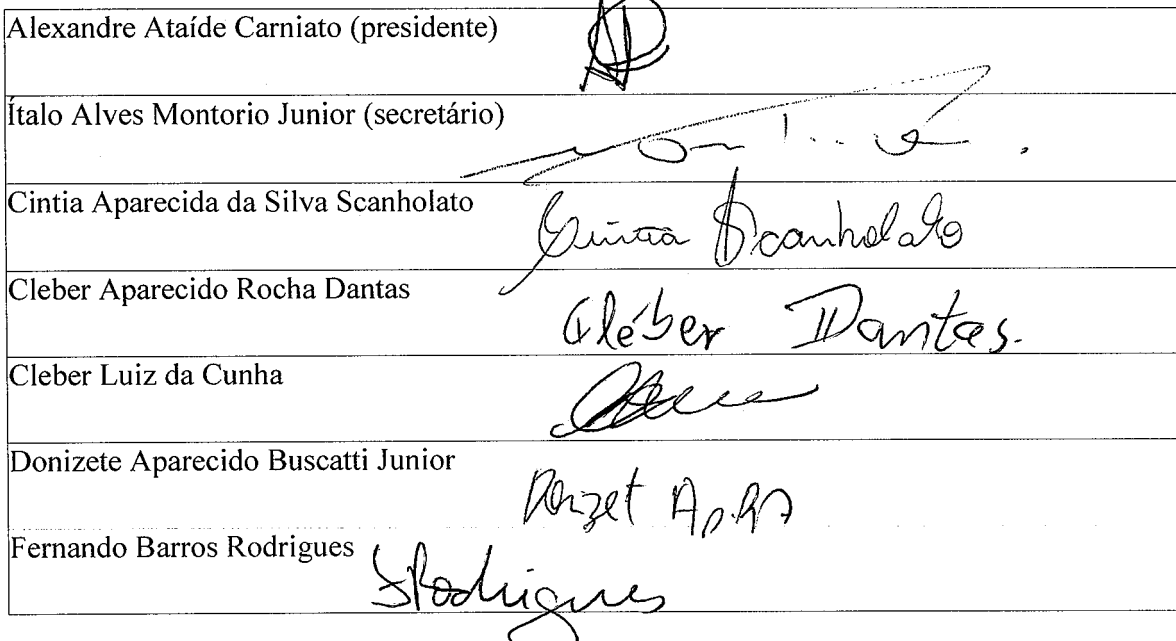 Alexandre Ataíde Carniato (presidente)
Ítalo Alves Montorio Junior (secretário)
Cintia Aparecida da Silva Scanholato
Cintia Scanholato
Cleber Aparecido Rocha Dantas
Cléber Dantas.
Cleber Luiz da Cunha
Donizete Aparecido Buscatti Junior
Fernando Barros Rodrigues
FRodrigues